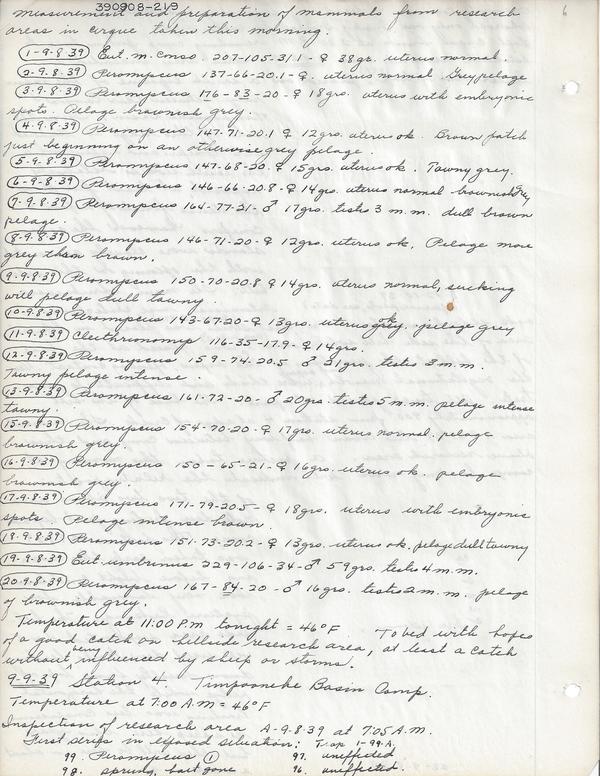 390908-219
6
Measurement and preparation of mammals from research
areas in cirque taken this morning.
1-9-8-39 Eut. m. conso. 207-105-31.1 - ♀ 38gr. uterus normal.
2-9.8.39 Peromyscus 137-66-20.1-♀. uterus normal Grey pelage
3-9.8.39 Peromyscus 176-83-20-♀ 18grs. uterus with embryonic
spots. Pelage brownish grey.
4.9.8.39 Peromyscus 147-71-20.1 ♀ 12grs. uterus ok. Brown patch
just beginning on an otherwise grey pelage.
5-9.8.39 Peromyscus 147-68-20. ♀ 15grs. uterus ok. Tawny grey.
6-9-8-39 Peromyscus 146-66-20.8-♀ 14grs. uterus normal brownish grey
7-9.8.39 Peromyscus 164-77-21-♂ 17grs. testis 3 m.m. dull brown
pelage.
8-9.8.39 Peromyscus 146-71-20-♀ 12grs. uterus ok. Pelage more
grey than brown.
9-9.8.39 Peromyscus 150-70-20.8 ♀ 14grs. uterus normal, sucking
will pelage dull tawny.
10-9.8.39 Peromyscus 143-67-20-♀ 13grs. uterus ok. pelage grey
11-9.8.39 Clethrionomys 116-35-17.9-♀ 14grs.
12-9.8.39 Peromyscus 159-74-20.5 ♂ 21grs. testis 3 m.m.
Tawny pelage intense.
13-9.8.39 Peromyscus 161-72-20-♂ 20grs. testis 5 m.m. pelage intense
tawny.
15-9.8.39 Peromyscus 154-70-20 ♀ 17grs. uterus normal. pelage
brownish grey.
16-9.8.39 Peromyscus 150-65-21-♀ 16grs. uterus ok. pelage
brownish grey.
17-9.8.39 Peromyscus 171-79-20.5-♀ 18grs. uterus with embryonic
spots. Pelage intense brown.
18-9.8.39 Peromyscus 151-73-20.2-♀ 13grs. uterus ok. pelage dull tawny
19-9.8.39 Eut. umbrinus 229-106-34-♂ 59grs. testis 4 m.m.
20-9.8.39 Peromyscus 167-84-20-♂ 16grs. testis 2 m.m. pelage
of brownish grey.
Temperature at 11:00 P.M tonight = 46°F. To bed with hopes
of a good catch on hillside research area, at least a catch
without being influenced by sheep or storms.
9-9-39 Station 4. Timpooneke Basin Camp.
Temperature at 7:00 A.M = 46°F
Inspection of research area A-9-8-39 at 7:05 A.M.
First series in exposed situation: Trap 1-99-A.
99. Peromyscus ① 97. uneffected
98. sprung, bait gone 96. uneffected.